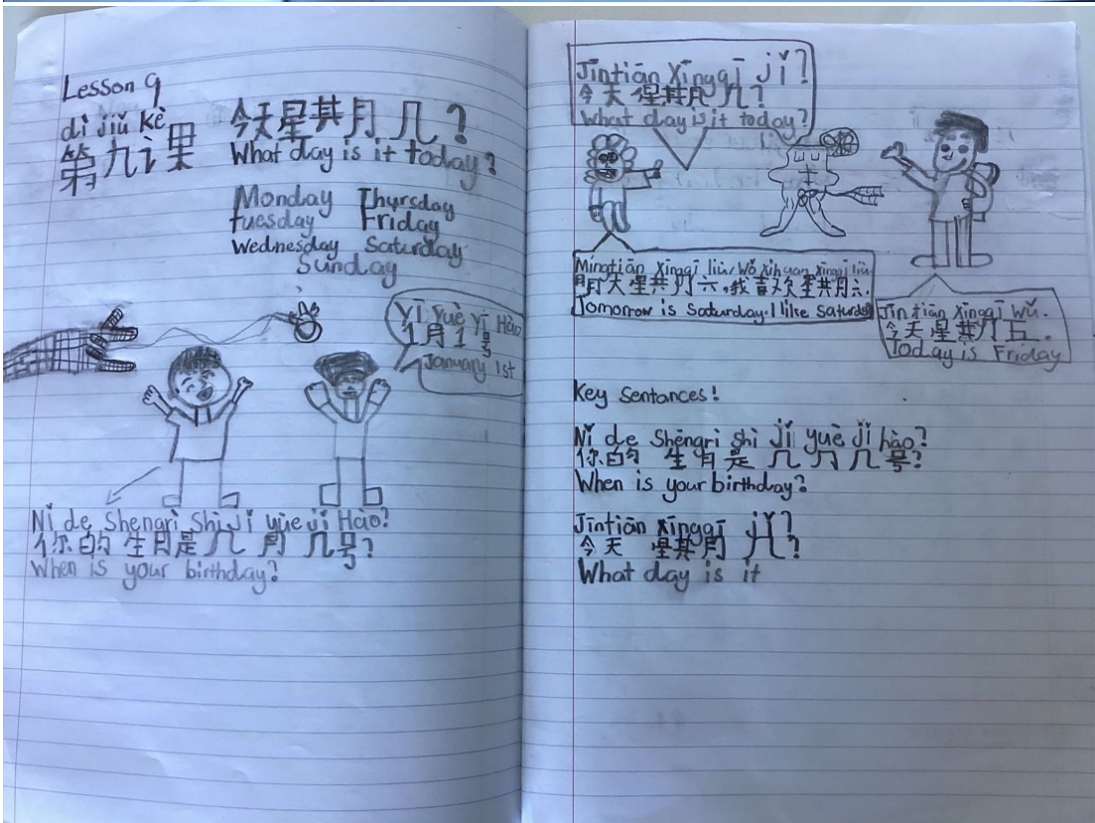 Lesson 9
dì jiǔ kè
第九课
今天星期几?
What day is it today?
Monday Thursday
Tuesday Friday
Wednesday Saturday
Sunday
Yī Yuè Yī Hào
1月1号
January 1st
Nǐ de Shengrì Shì Jǐ yùe jǐ Hào?
你的生日是几月几号?
When is your birthday?
Jīntiān Xīngqī jǐ?
今天星期几?
What day is it today?
Míngtiān Xīngqī liù, Wǒ xihuan xīngqī liù
明天星期六,我喜欢星期六.
Tomorrow is Saturday. I like Saturday
Jīn tiān Xīngqī Wǔ.
今天星期五.
Today is Friday
Key Sentances!
Nǐ de Shēngrì shì jǐ yuè jǐ hào?
你的生日是几月几号?
When is your birthday?
Jīntiān Xīngqī jǐ?
今天星期几?
What day is it